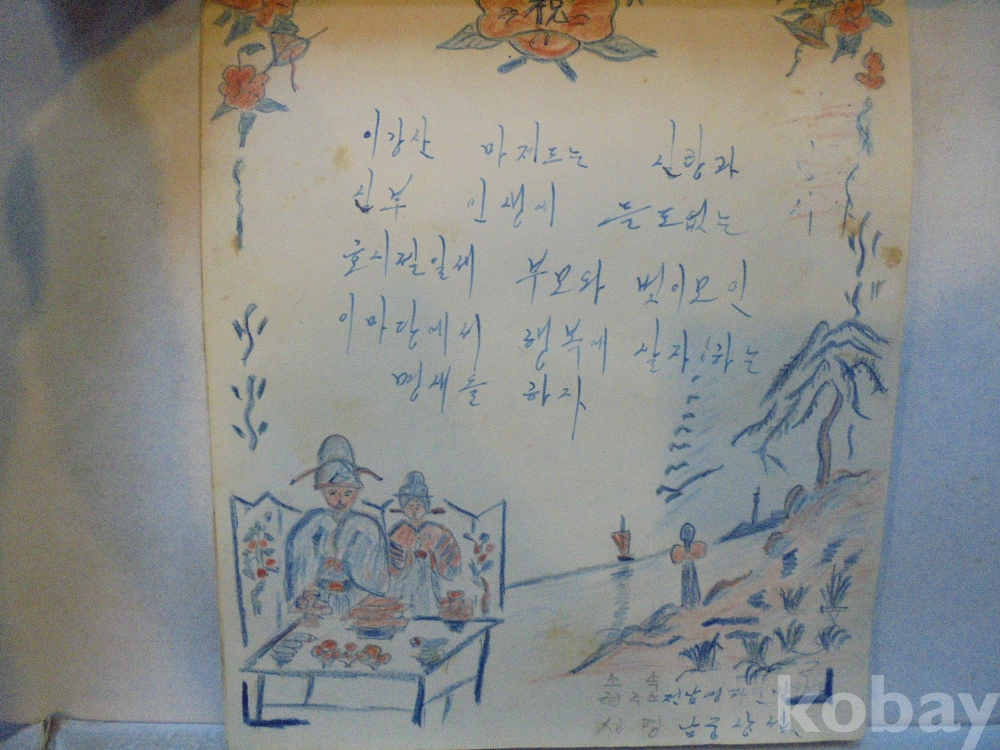 祝
이강산 마저도는 신랑과
신부 인생에 들도없는
호시절일세 부모와 벗이모인
이마당에서 행복에 살자!하는
맹세를 하자
소 속
현주소 전남영
성명 남궁
kobay